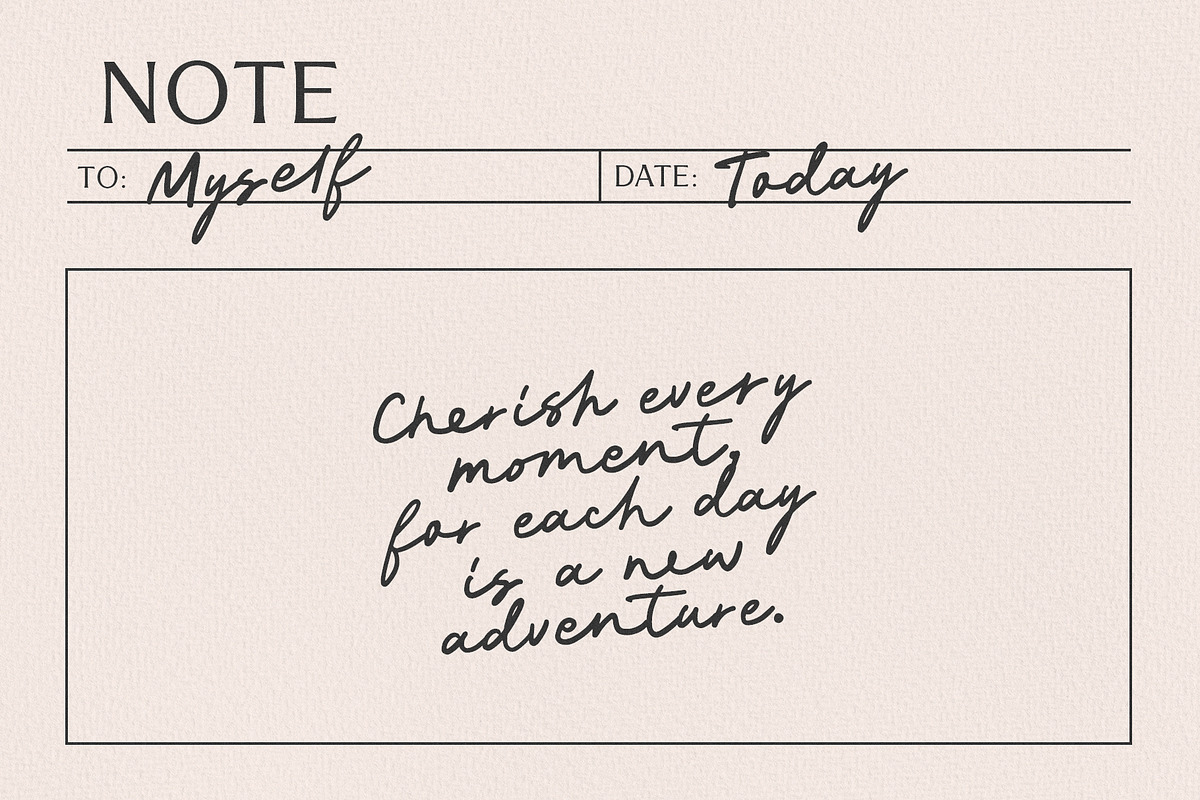 NOTE
TO: Myself DATE: Today
Cherish every
moment,
for each day
is a new
adventure.